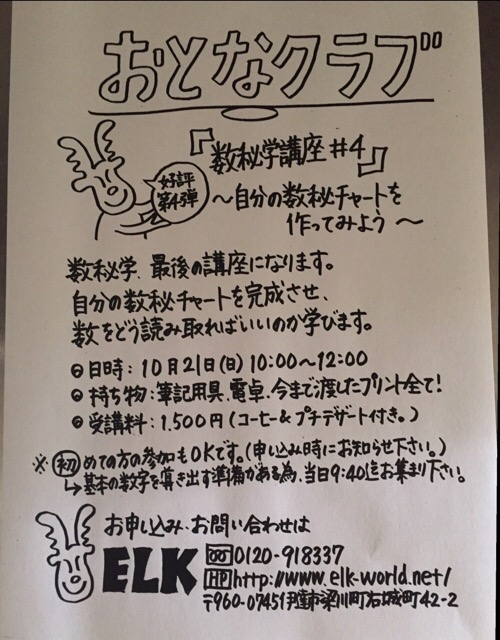 おとなクラブ
『数秘学講座#4』
好評
第4弾
～自分の数秘チャートを
作ってみよう～
数秘学、最後の講座になります。
自分の数秘チャートを完成させ、
数をどう読み取ればいいのか学びます。
◎日時：10月21日(日)10:00～12:00
◎持ち物：筆記用具、電卓、今まで渡したプリント全て！
◎受講料：1,500円（コーヒー&プチデザート付き。）
※初めての方の参加もOKです。(申し込み時にお知らせ下さい。)
↳基本の数字を導き出す準備がある為、当日9:40位お集まり下さい。
お申し込み、お問い合わせは
ELK 0120-918337
HP http://www.elk-world.net/
〒960-0745 伊達市梁川町右城町42-2